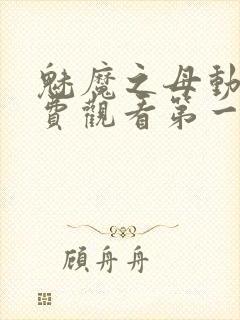 魅魔之母動
費觀看第一
顧舟舟